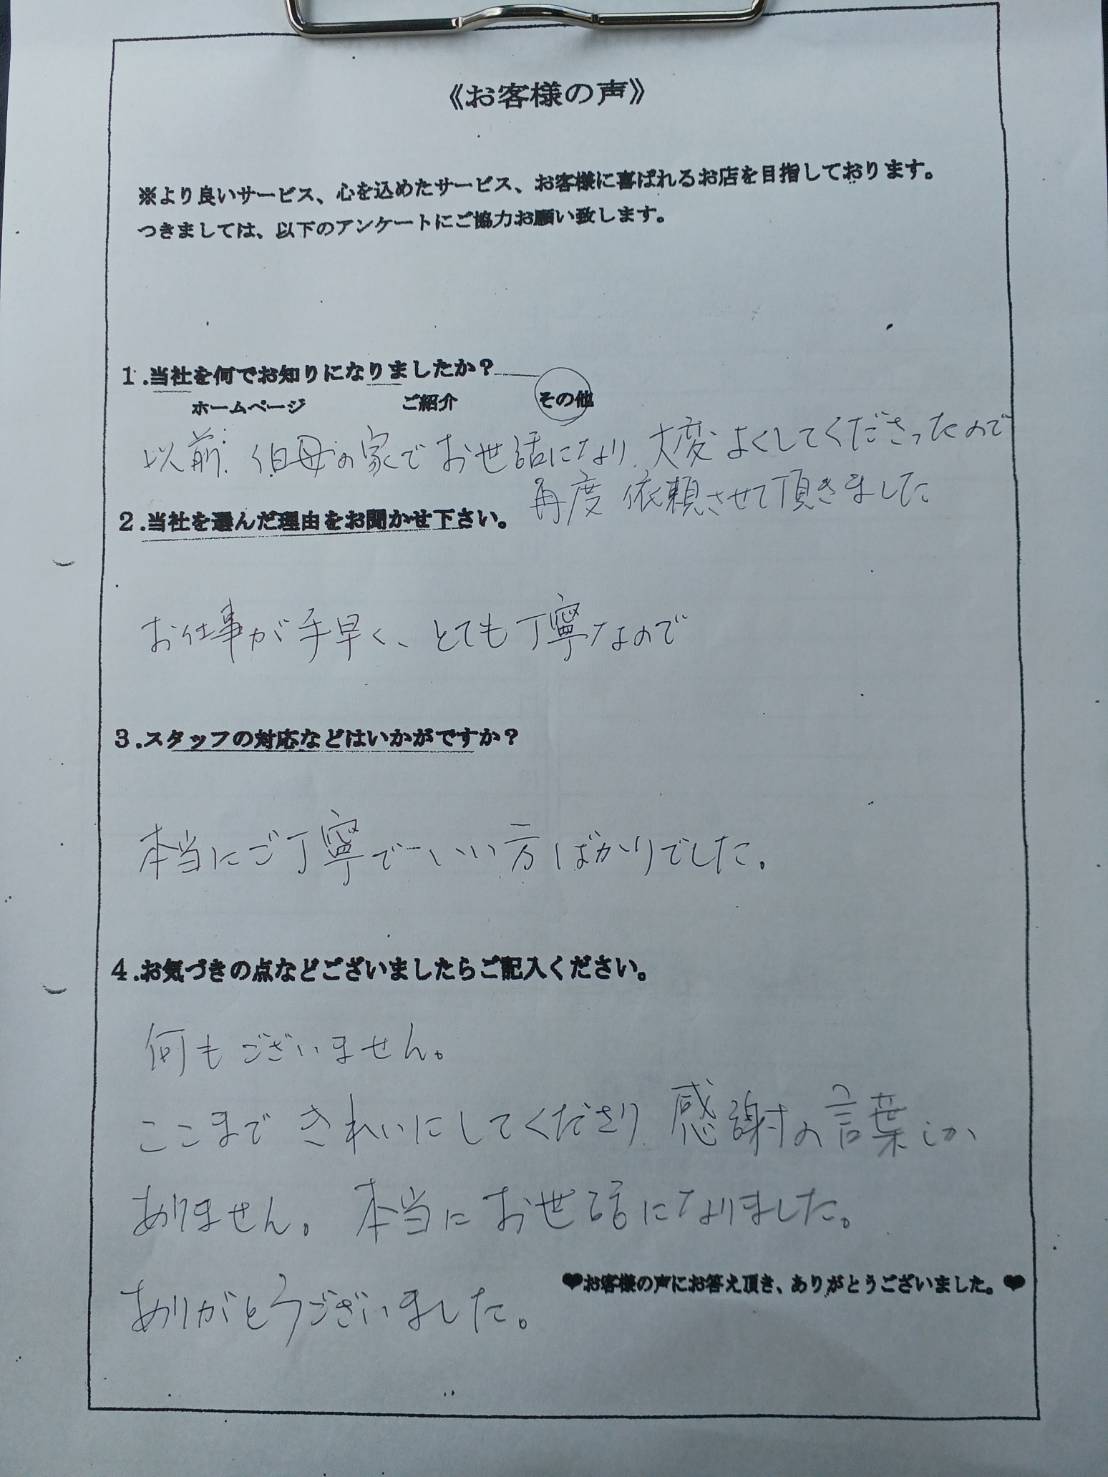 《お客様の声》
※より良いサービス、心を込めたサービス、お客様に喜ばれるお店を目指しております。
つきましては、以下のアンケートにご協力お願い致します。
1.当社を何でお知りになりましたか?
ホームページ ご紹介 その他
以前、伯母の家でお世話になり、大変よくしてくださったので
再度依頼させて頂きました
2.当社を選んだ理由をお聞かせ下さい。
お仕事が手早く、とても丁寧なので
3.スタッフの対応などはいかがですか?
本当にご丁寧でいい方ばかりでした。
4.お気づきの点などございましたらご記入ください。
何もございません。
ここまできれいにしてくださり、感謝の言葉しか
ありません。本当にお世話になりました。
♥お客様の声にお答え頂き、ありがとうございました。♥
ありがとうございました。